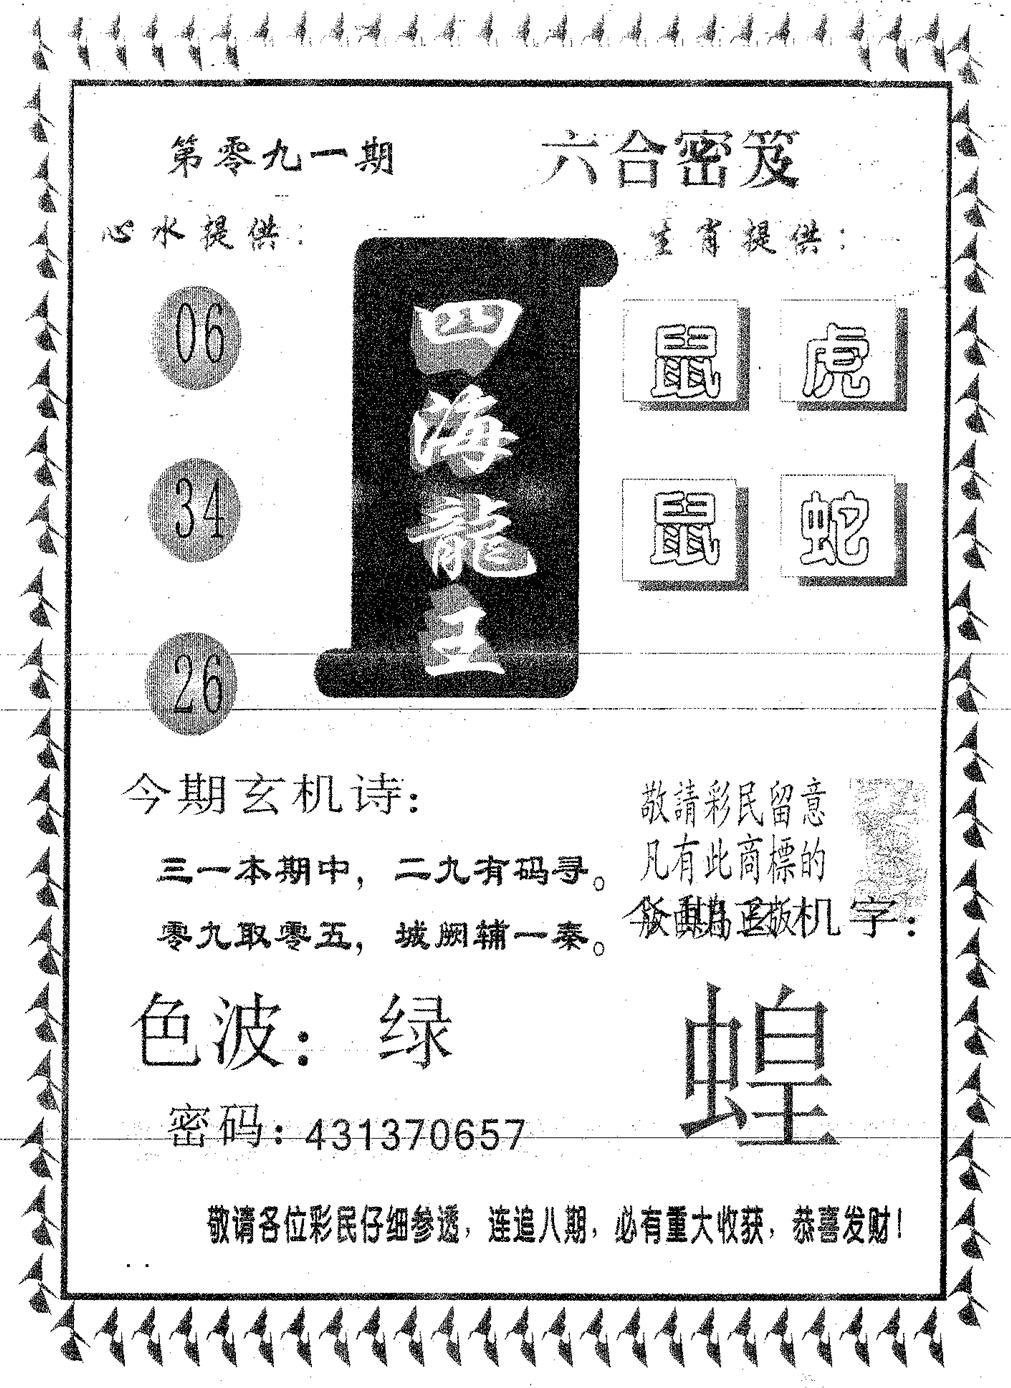 第零九一期
六合密笈
心水提供：
生肖提供：
06
34
26
四海龍王
鼠 虎
鼠 蛇
今期玄机诗：
三一本期中，二九有码寻。
零九取零五，城阙辅一秦。
敬請彩民留意
凡有此商標的
版面為正版
机字：
色波：绿
蝗
密码：431370657
敬请各位彩民仔细参透，连追八期，必有重大收获，恭喜发财！